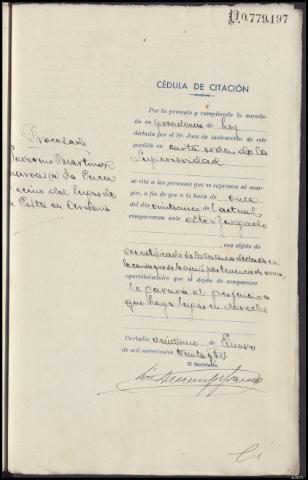 0.779.197
CÉDULA DE CITACIÓN
Por la presente y cumpliendo lo manda-
do en providencia de hoy
dictada por el Sr. Juez de instrucción de este
partido en carta orden de la
Superioridad
se cita a las personas que se expresan al mar-
gen, a fin de que a la hora de once
del día veinticinco del actual
comparezcan ante este Juzgado
con objeto de
ser notificado de la
en
la causa que se le siguió por tenencia de arma,
apercibiéndoles que si dejan de comparecer
le parará el perjuicio a
que haya lugar en derecho
Procesado
Severino Martínez
vecino del lugar de
Carballo veintiuno de Enero
de mil novecientos treinta y
El Secretario,